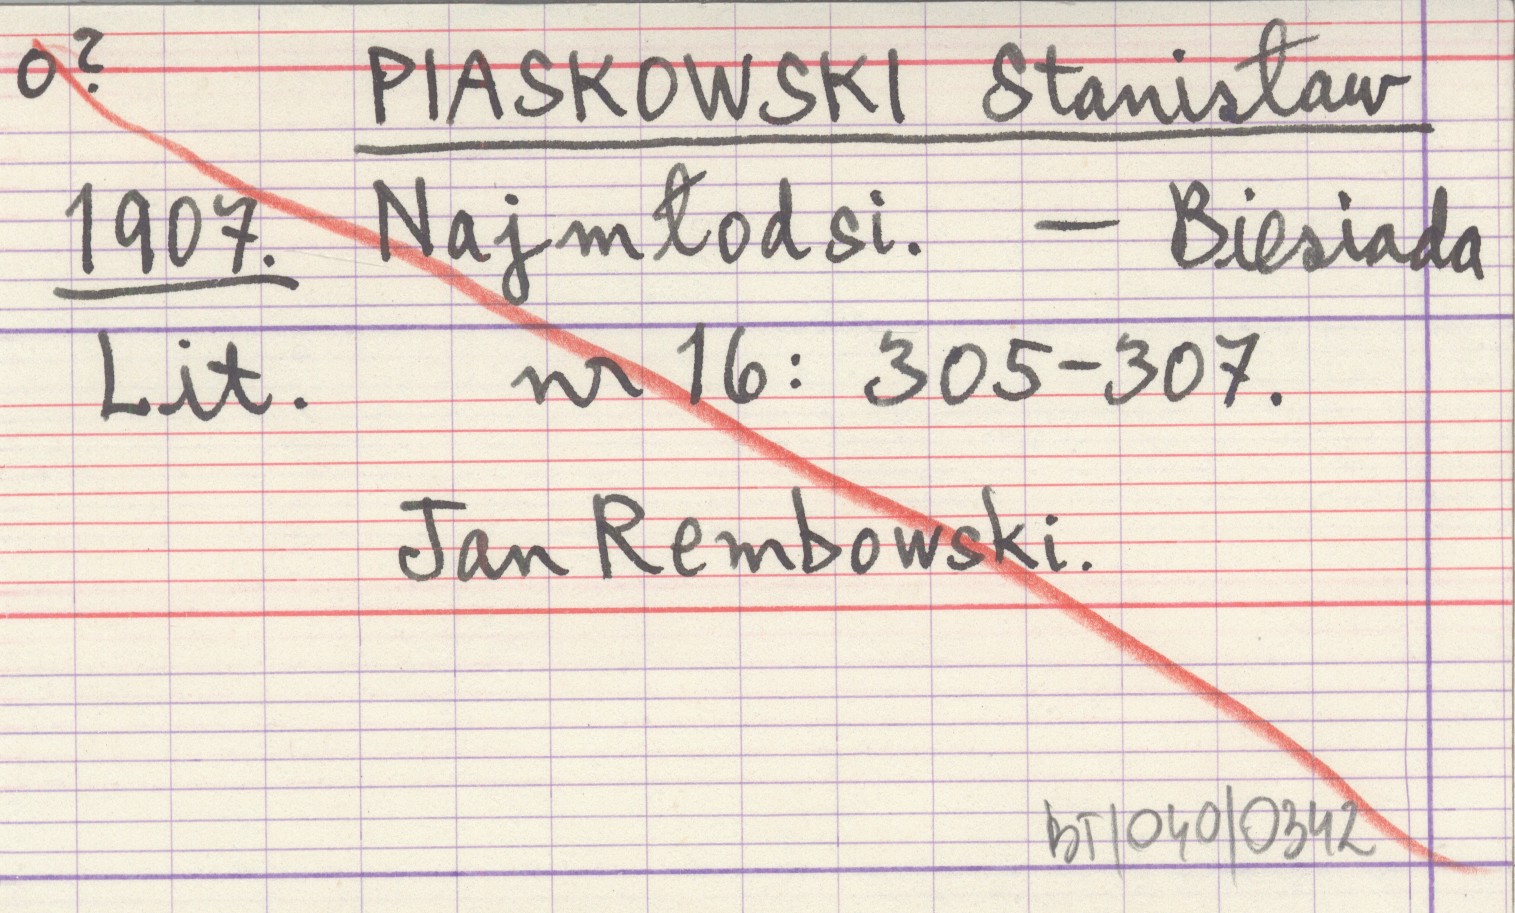 o? PIASKOWSKI Stanisław
1907. Najmłodsi. — Biesiada
Lit. nr 16: 305-307.
Jan Rembowski.
BT/040/0342